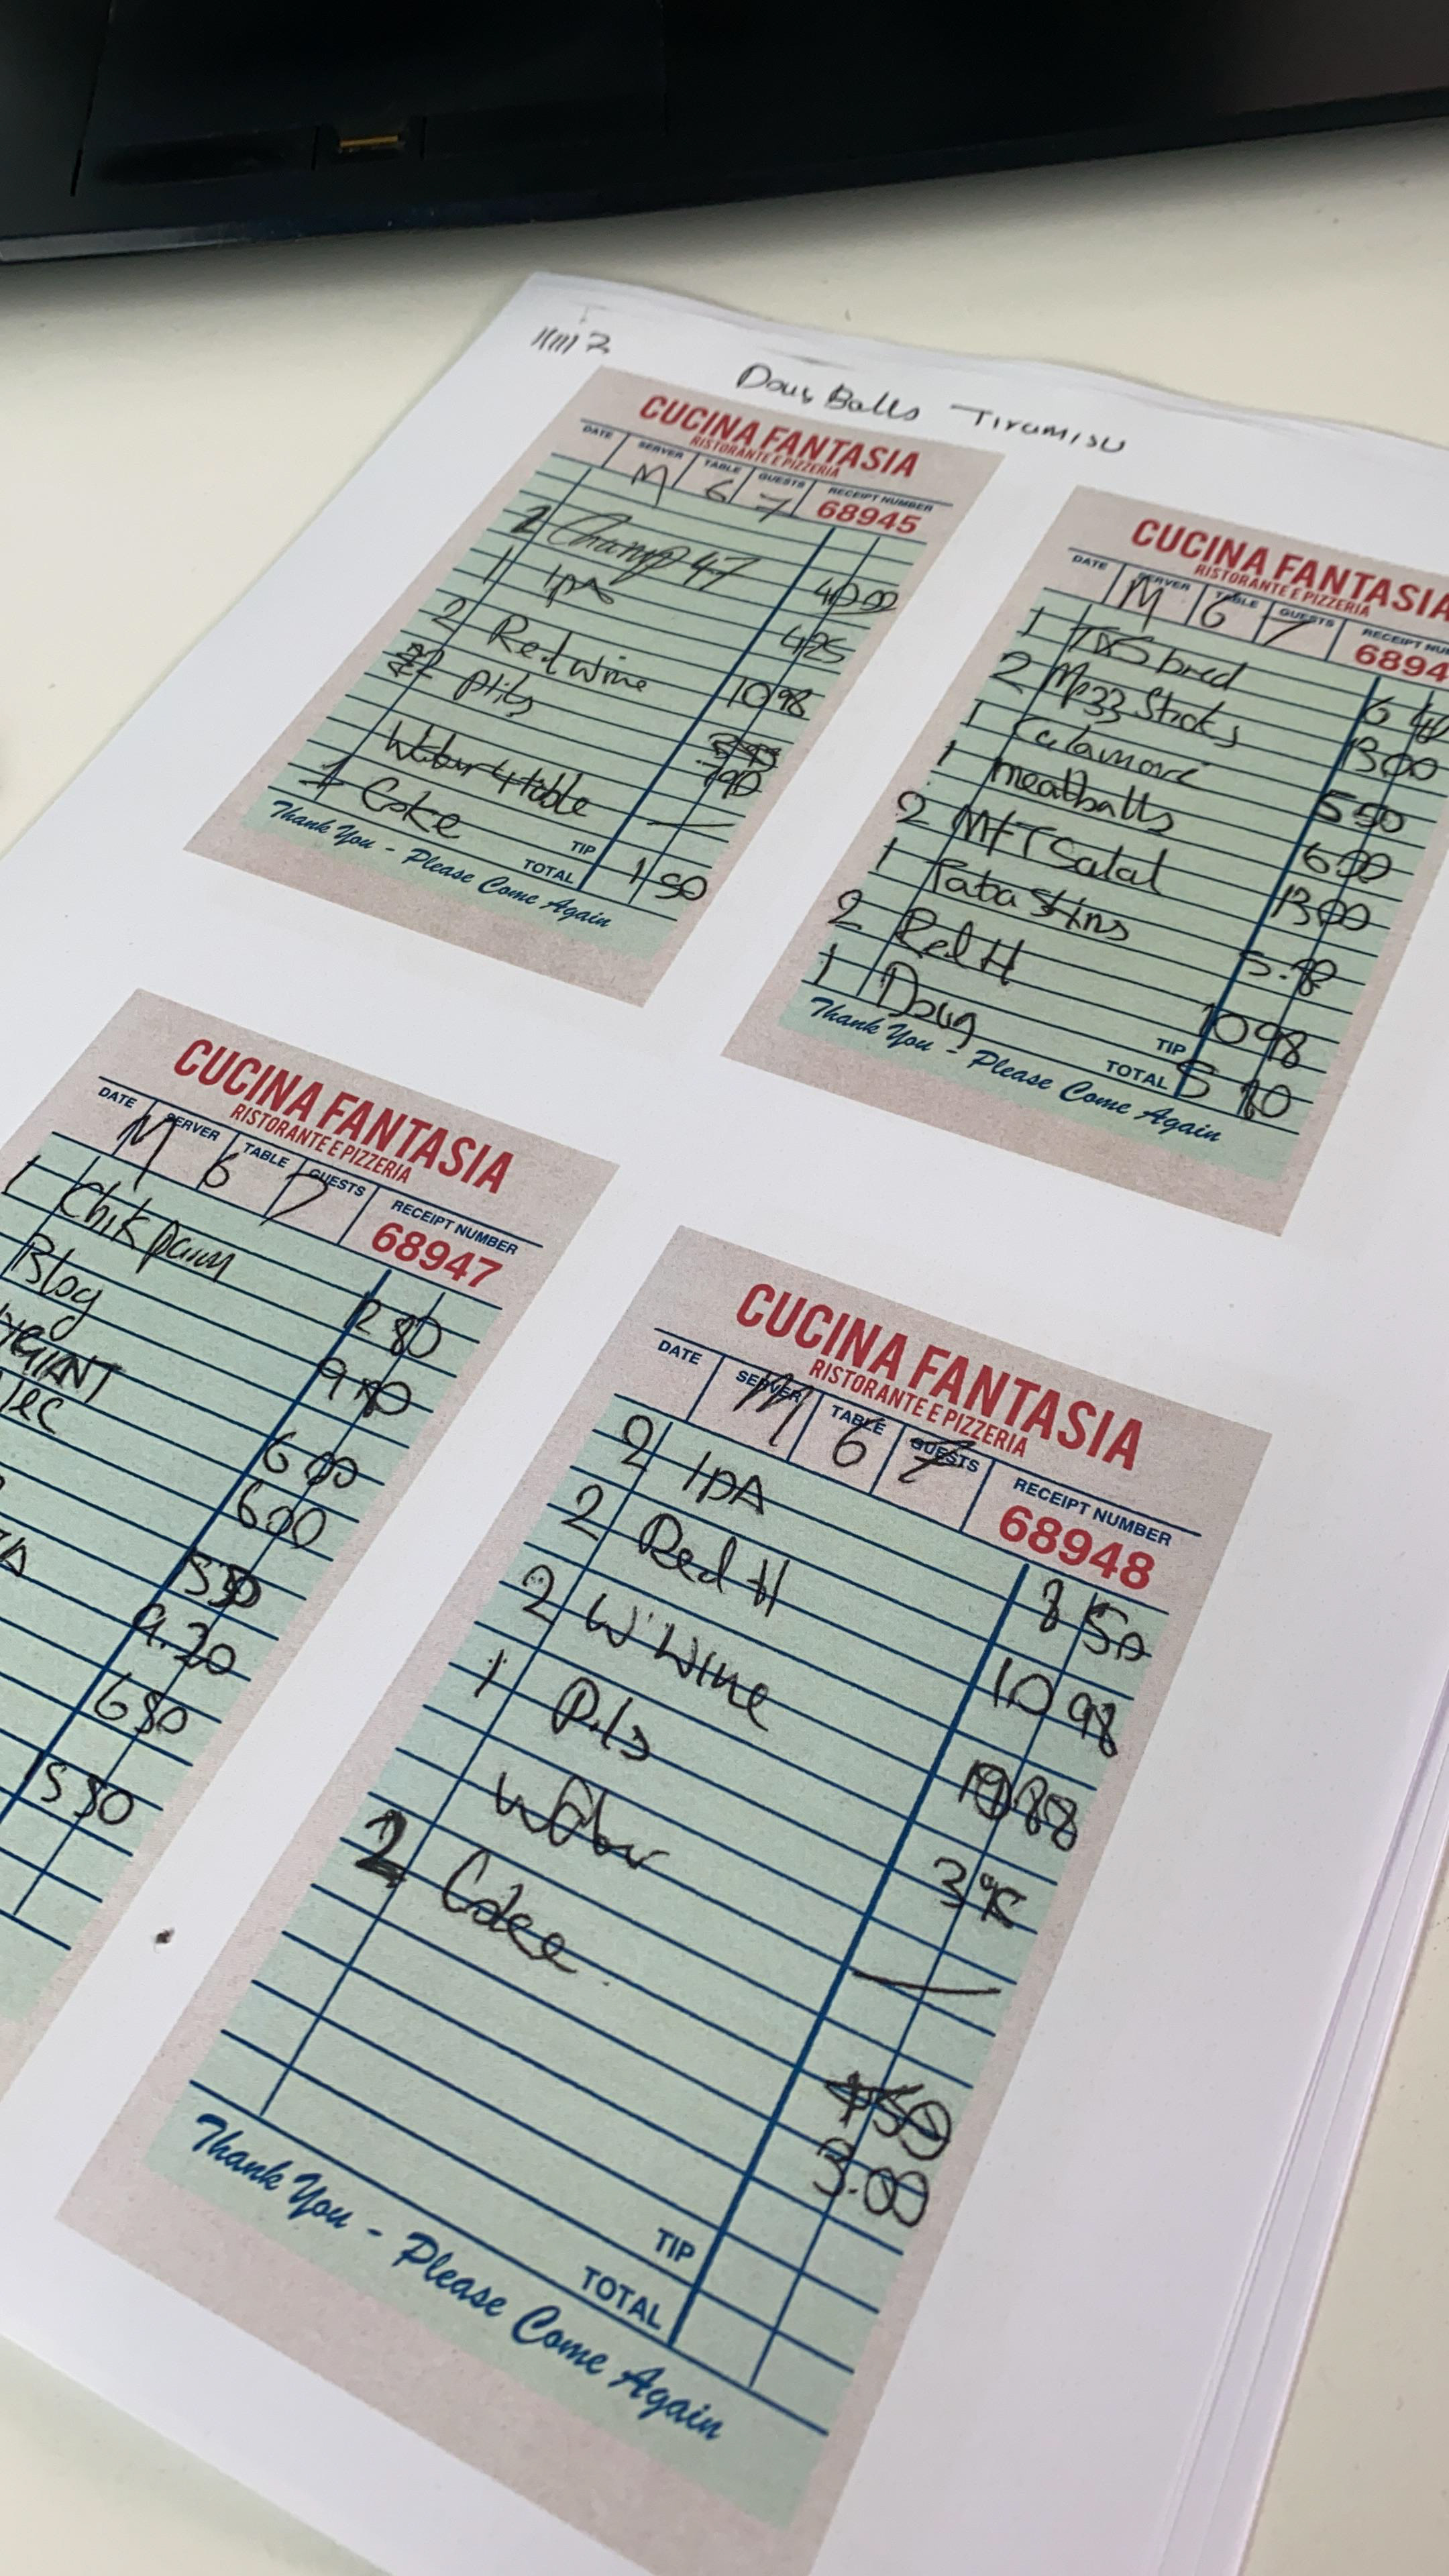 Doug Balls Tiramisu
CUCINA FANTASIA
RISTORANTE E PIZZERIA
DATE SERVER TABLE GUESTS RECEIPT NUMBER
M 6 7 68945
2 Champ 47 40 00
1 IPA 4 25
2 Red wine 10 98
2 Pils
7 90
Water 4 table —
1 Coke 1 50
TIP
TOTAL
Thank You - Please Come Again
CUCINA FANTASIA
RISTORANTE E PIZZERIA
DATE SERVER TABLE GUESTS RECEIPT NU
M 6 7 6894
1 bred 6 40
2 Mozz Sticks 13 00
1 Calamari 5 50
1 meatballs 6 00
2 M+T Salat 13 00
1 Tata Skins 5.98
2 Red H 10 98
1 Doug 5 10
TIP
TOTAL
Thank You - Please Come Again
CUCINA FANTASIA
RISTORANTE E PIZZERIA
DATE SERVER TABLE GUESTS RECEIPT NUMBER
M 6 7 68947
1 Chik parm 12 80
Blog
6 00
6 00
5 50
9.20
6 50
5 50
CUCINA FANTASIA
RISTORANTE E PIZZERIA
DATE SERVER TABLE GUESTS RECEIPT NUMBER
M 6 7 68948
2 IPA 8 50
2 Red H 10 98
2 W Wine
1 Pils 3 95
Water —
2 Coke
1 50
3.00
TIP
TOTAL
Thank You - Please Come Again